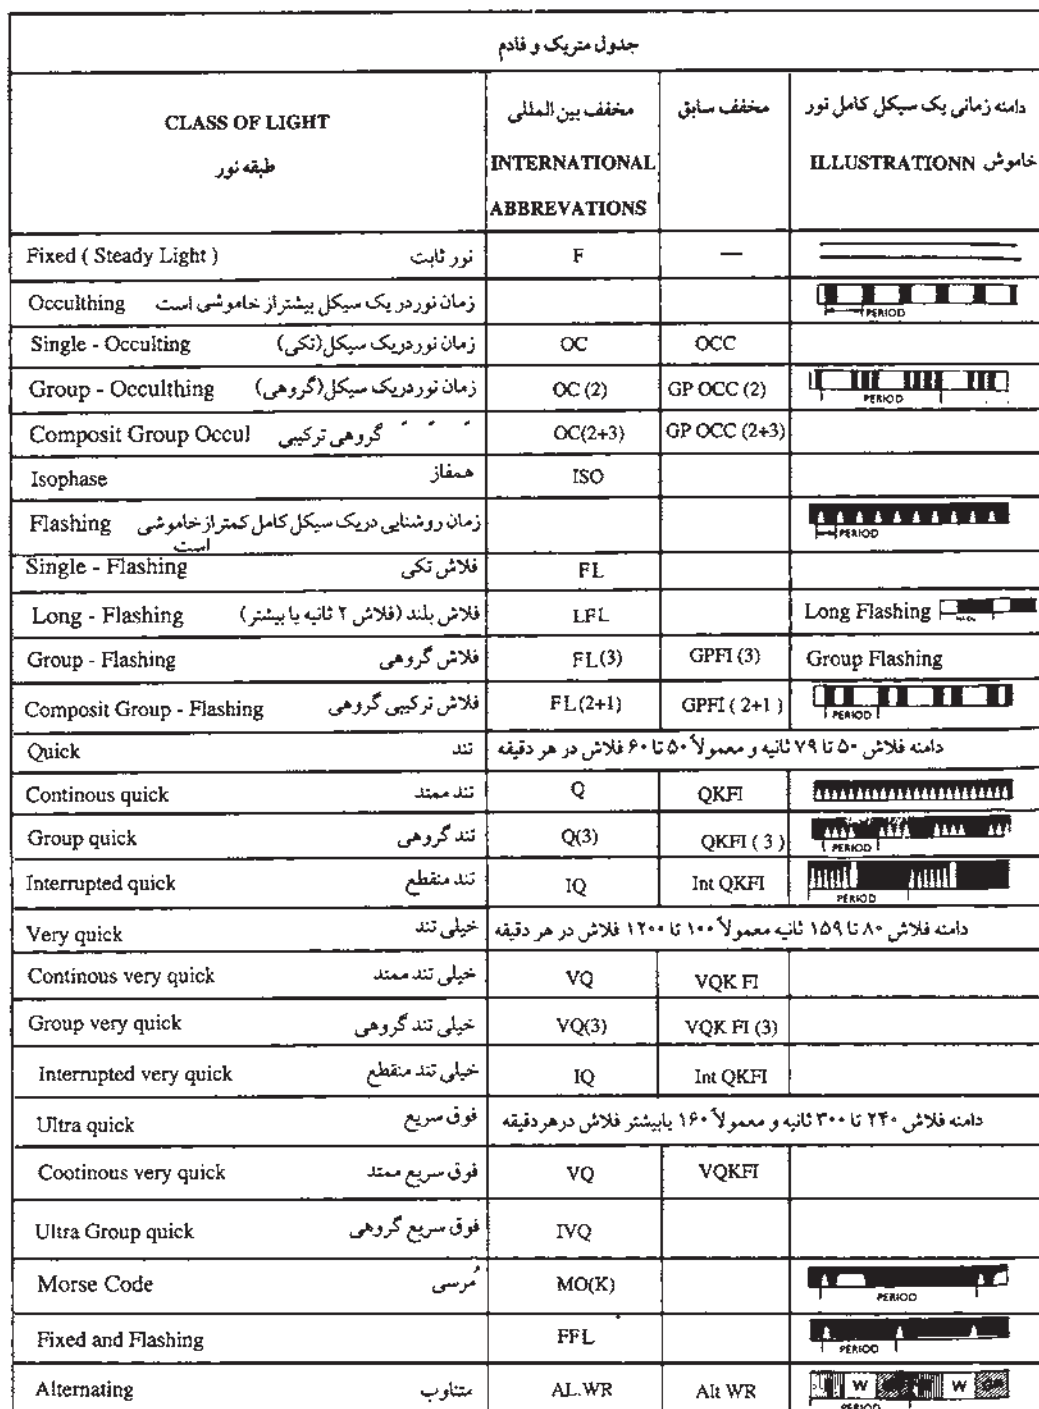 جدول متریک و فادم
CLASS OF LIGHT
طبقه نور
مخفف بین المللی
INTERNATIONAL
ABBREVATIONS
مخفف سابق
دامنه زمانی یک سیکل کامل نور
خاموش ILLUSTRATIONN
Fixed ( Steady Light ) نور ثابت F —
Occulthing زمان نوردر یک سیکل بیشتراز خاموشی است PERIOD
Single - Occulting زمان نوردریک سیکل(تکی) OC OCC
Group - Occulthing زمان نوردریک سیکل(گروهی) OC (2) GP OCC (2) PERIOD
Composit Group Occul گروهی ترکیبی OC(2+3) GP OCC (2+3)
Isophase همفاز ISO
Flashing زمان روشنایی دریک سیکل کامل کمتراز خاموشی PERIOD
است
Single - Flashing فلاش تکی FL
Long - Flashing فلاش بلند (فلاش ۲ ثانیه یا بیشتر) LFL Long Flashing
Group - Flashing فلاش گروهی FL(3) GPFI (3) Group Flashing
Composit Group - Flashing فلاش ترکیبی گروهی FL(2+1) GPFI ( 2+1 ) PERIOD
Quick تند دامنه فلاش ۵۰ تا ۷۹ ثانیه و معمولاً ۵۰ تا ۶۰ فلاش در هر دقیقه
Continous quick تند ممتد Q QKFI
Group quick تند گروهی Q(3) QKFI ( 3 ) PERIOD
Interrupted quick تند منقطع IQ Int QKFI PERIOD
Very quick خیلی تند دامنه فلاش ۸۰ تا ۱۵۹ ثانیه معمولاً ۱۰۰ تا ۱۲۰۰ فلاش در هر دقیقه
Continous very quick خیلی تند ممتد VQ VQK FI
Group very quick خیلی تند گروهی VQ(3) VQK FI (3)
Interrupted very quick خیلی تند منقطع IQ Int QKFI
Ultra quick فوق سریع دامنه فلاش ۲۴۰ تا ۳۰۰ ثانیه و معمولاً ۱۶۰ یابیشتر فلاش درهر دقیقه
Cootinous very quick فوق سریع ممتد VQ VQKFI
Ultra Group quick فوق سریع گروهی IVQ
Morse Code مُرسی MO(K) PERIOD
Fixed and Flashing FFL PERIOD
Alternating متناوب AL.WR Alt WR W W PERIOD